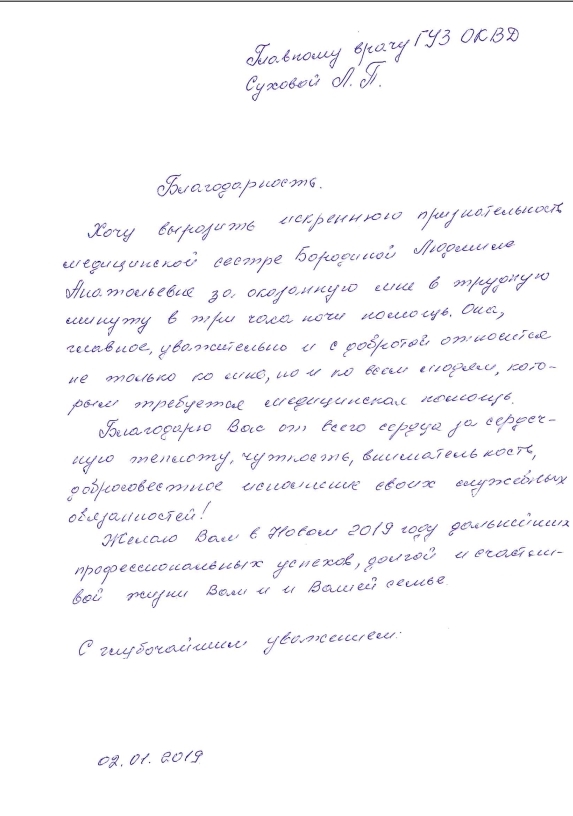 Главному врачу ГУЗ ОКВД
Суховой Л. П.
Благодарность.
Хочу выразить искреннюю признательность
медицинской сестре Бородиной Людмиле
Анатольевне за оказанную мне в трудную
минуту в три часа ночи помощь. Она,
главное, уважительно и с добротой относится
не только ко мне, но и ко всем людям, кото-
рым требуется медицинская помощь.
Благодарю Вас от всего сердца за сердеч-
ную теплоту, чуткость, внимательность,
добросовестное исполнение своих служебных
обязанностей!
Желаю Вам в Новом 2019 году дальнейших
профессиональных успехов, долгой и счастли-
вой жизни Вам и и Вашей семье.
С глубочайшим уважением:
02.01.2019